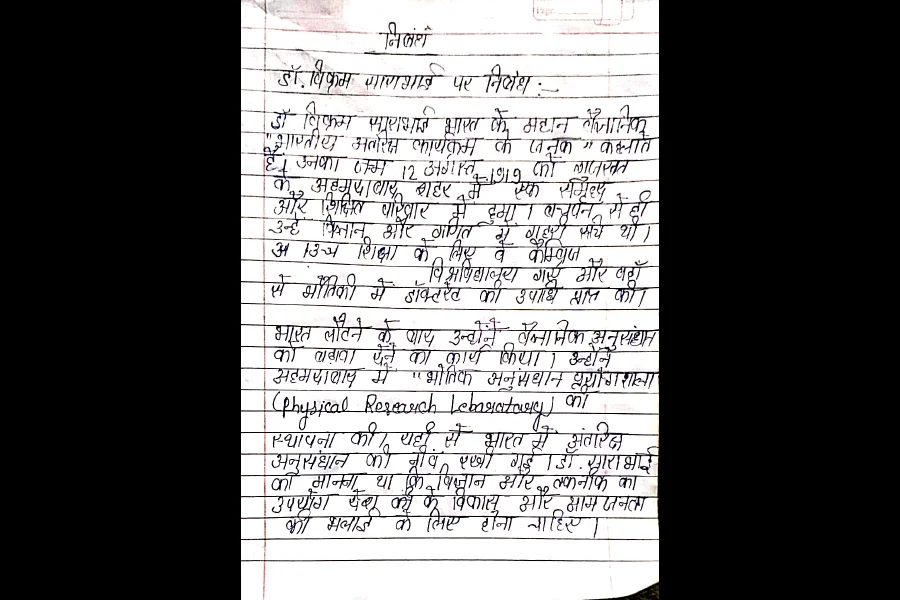 निबंध
डॉ. विक्रम साराभाई पर निबंध :-
डॉ विक्रम साराभाई भारत के महान वैज्ञानिक
"भारतीय अंतरिक्ष कार्यक्रम के जनक" कहलाते
है। उनका जन्म 12 अगस्त 1919 को गुजरात
के अहमदाबाद शहर में एक समृध्द
और शिक्षित परिवार में हुआ। बचपन से ही
उन्हे विज्ञान और गणित में गहरी रूचि थी।
उच्च शिक्षा के लिए वे कैम्ब्रिज
विश्वविद्यालय गए और वहाँ
से भौतिकी में डॉक्टरेट की उपाधि प्राप्त की।
भारत लौटने के बाद उन्होंने वैज्ञानिक अनुसंधान
को बढावा देने का कार्य किया। उन्होंने
अहमदाबाद में "भौतिक अनुसंधान प्रयोगशाला
(Physical Research Leboratory) की
स्थापना की। यहीं से भारत में अंतरिक्ष
अनुसंधान की नींव रखी गई। डॉ. साराभाई
का मानना था कि विज्ञान और तकनीक का
उपयोग देश के विकास और आम जनता
की भलाई के लिए होना चाहिए।